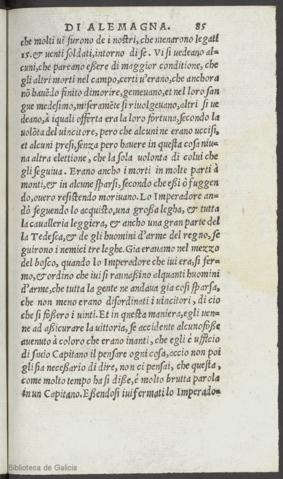 DI ALEMAGNA. 85
che molti ui furono de i nostri, che menarono legati
15. & uenti soldati, intorno di se. Vi si uedeano al-
cuni, che pareano eßere di maggior conditione, che
gli altri morti nel campo, certi u'erano, che anchora
nõ hauẽdo finito di morire, gemeuano, et nel loro san
gue medesimo, miseramẽte si riuolgeuano, altri si ue
deano, à iquali offerta era la loro fortuna, secondo la
uolõta del uincitore, pero che alcuni ne erano uccisi,
et alcuni presi, senza pero hauere in questa cosa niu-
na altra elettione, che la sola uolonta di colui che
gli seguiua. Erano ancho i morti in molte parti à
monti, & in alcune sparsi, secondo che eßi ò fuggen
do, ouero resistendo moriuano. Lo Imperadore an-
dò seguendo lo acquisto, una großa legha, & tutta
la caualleria leggiera, & ancho una gran parte del
la Tedesca, & de gli huomini d'arme del regno, se
guirono i nemici tre leghe. Gia erauamo nel mezzo
del bosco, quando lo Imperadore che iui era, si fer-
mo, & ordino che iui si raunaßino alquanti huomini
d'arme, che tutta la gente ne andaua gia cosi sparsa,
che non meno erano disordinati i uincitori, di cio
che si foßero i uinti. Et in questa maniera, egli uen-
ne ad aßicurare la uittoria, se accidente alcuno foße
auenuto à coloro che erano inanti, che egli è ufficio
di sauio Capitano il pensare ogni cosa, accio non poi
gli sia neceßario di dire, non ci pensai, che questa,
come molto tempo ha si diße, è molto brutta parola
in un Capitano. Eßendosi iui fermati lo Imperado-
Biblioteca de Galicia